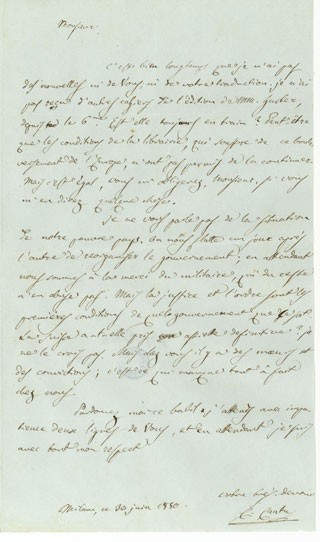 Monsieur
C'est bien longtemps que je n'ai pas
des nouvelles ni de Vous, ni de votre traduction, je n'ai
pas reçu d'autres cahiers de l'édition de MM.
depuis le 6me. Est elle toujours en train? Peut être
que les conditions de la librairie, qui souffre de ce boule
versement de l'Europe, n'ont pas permis de la continuer.
Mais c'est égal, vous m'obligerez, Monsieur, si vous
m'en direz quelque chose.
Je ne vous parle pas de la situation
de notre pauvre pays. On nous flatte un jour après
l'autre de reorganiser le gouvernement; en attendant
nous sommes à la merci du militaire, qui du reste
n'en abuse pas. Mais la justice et l'ordre sont les
premières conditions de quelque gouvernement que ce soit.
La Suisse a-t-elle pris assiette définitive? je
ne le crois pas. Mais chez vous il y a des mœurs et
des convictions; c'est ce qui manque tout à fait
chez nous.
Pardonnez moi ce babil: j'attends avec impa
tience deux lignes de Vous, et en attendant je suis
avec tout mon respect
votre
Milan, ce 30 juin 1850.
C. Cantu